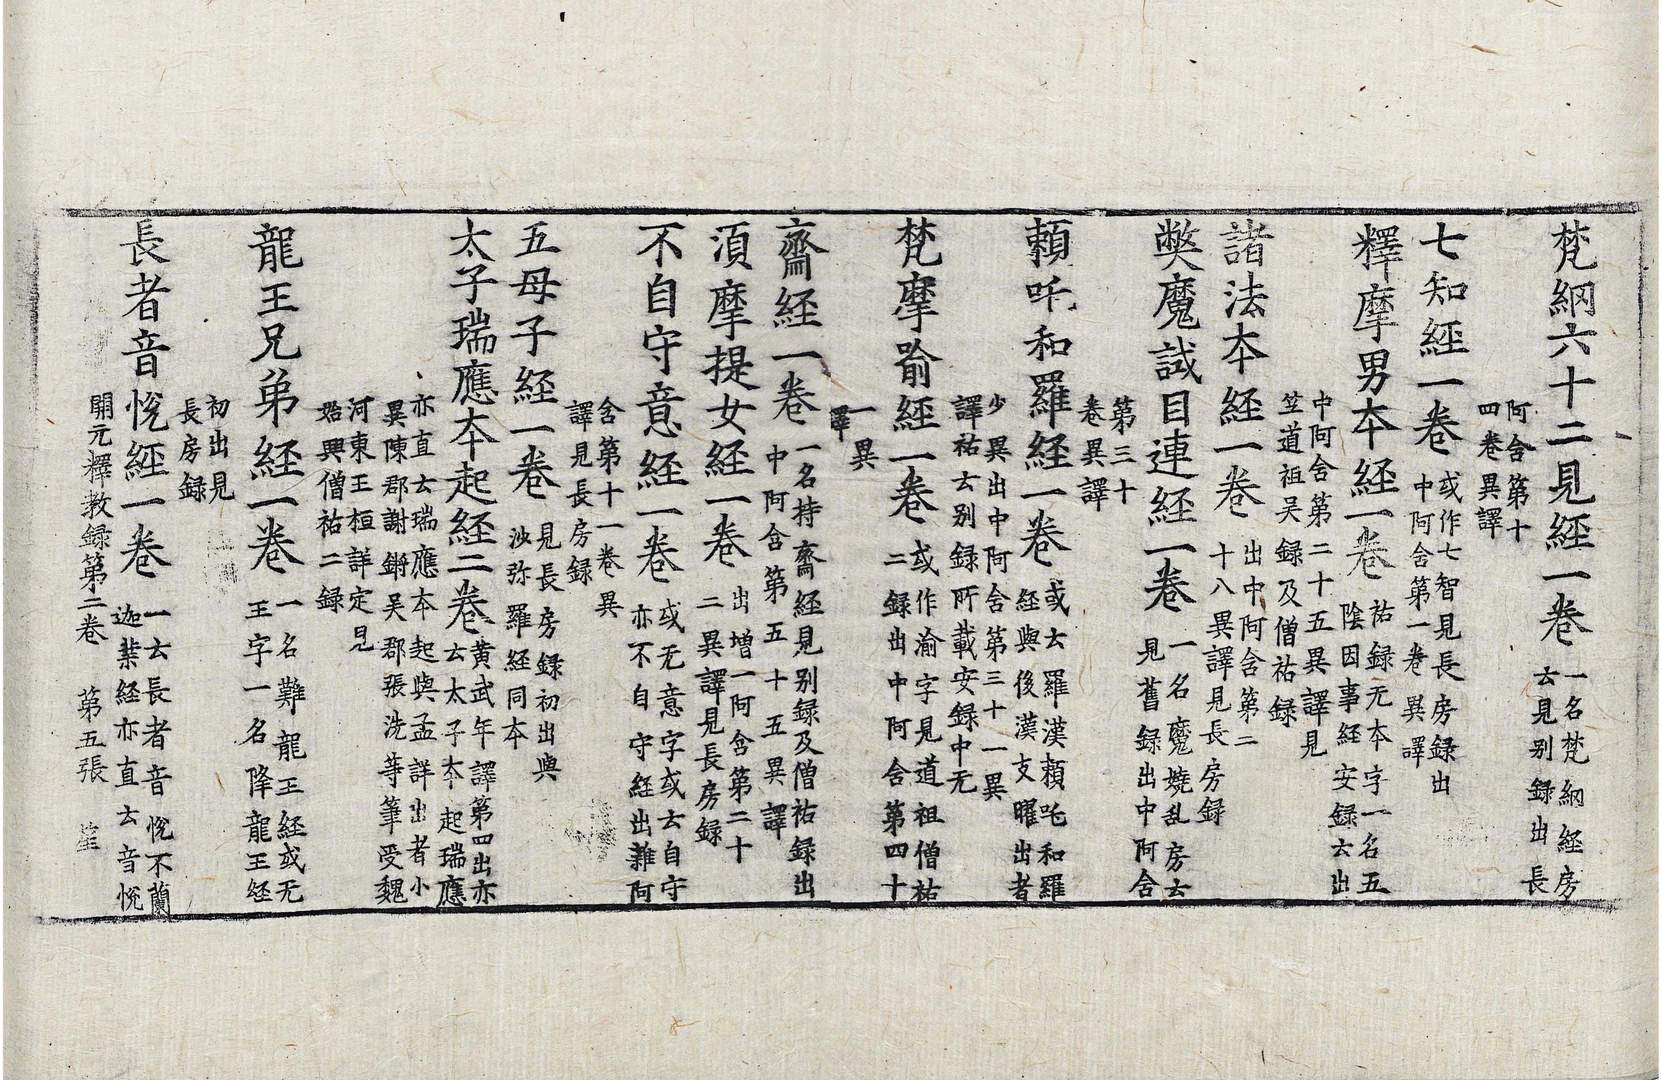 梵網六十二見經一卷 一名梵網經房云見别録出長
阿含第十四卷異譯
七知經一卷 或作七智見長房録出中阿含第一卷異譯
釋摩男本經一卷 祐録无本字一名五陰因事經安録云出
中阿含第二十五異譯見竺道祖吴録及僧祐録
諸法本經一卷 出中阿含第二十八異譯見長房録
弊魔試目連經一卷 一名魔嬈乱房云見舊録出中阿含
第三十卷異譯
頼吒和羅經一卷 或云羅漢頼吒和羅經與後漢支曜出者
少異出中阿含第三十一異譯祐云别録所載安録中无
梵摩喻經一卷 或作渝字見道祖僧祐二録出中阿含第四十
一異譯
齋經一卷 一名持齋經見别録及僧祐録出中阿含第五十五異譯
湏摩提女經一卷 出增一阿含第二十二異譯見長房録
不自守意經一卷 或无意字或云自守亦不自守經出雜阿
含第十一卷異譯見長房録
五母子經一卷 見長房録初出與沙弥羅經同本
太子瑞應本起經二卷 黄武年譯第四出亦云太子本起瑞應
亦直云瑞應本起與孟詳出者小異陳郡謝鏘吴郡張洗等筆受魏
河東王桓詳定見始興僧祐二録
龍王兄弟經一卷 一名難龍王經或无王字一名降龍王經
初出見長房録
長者音恱經一卷 一云長者音恱不蘭迦葉經亦直云音恱
開元釋教録第二卷 第五張 笙